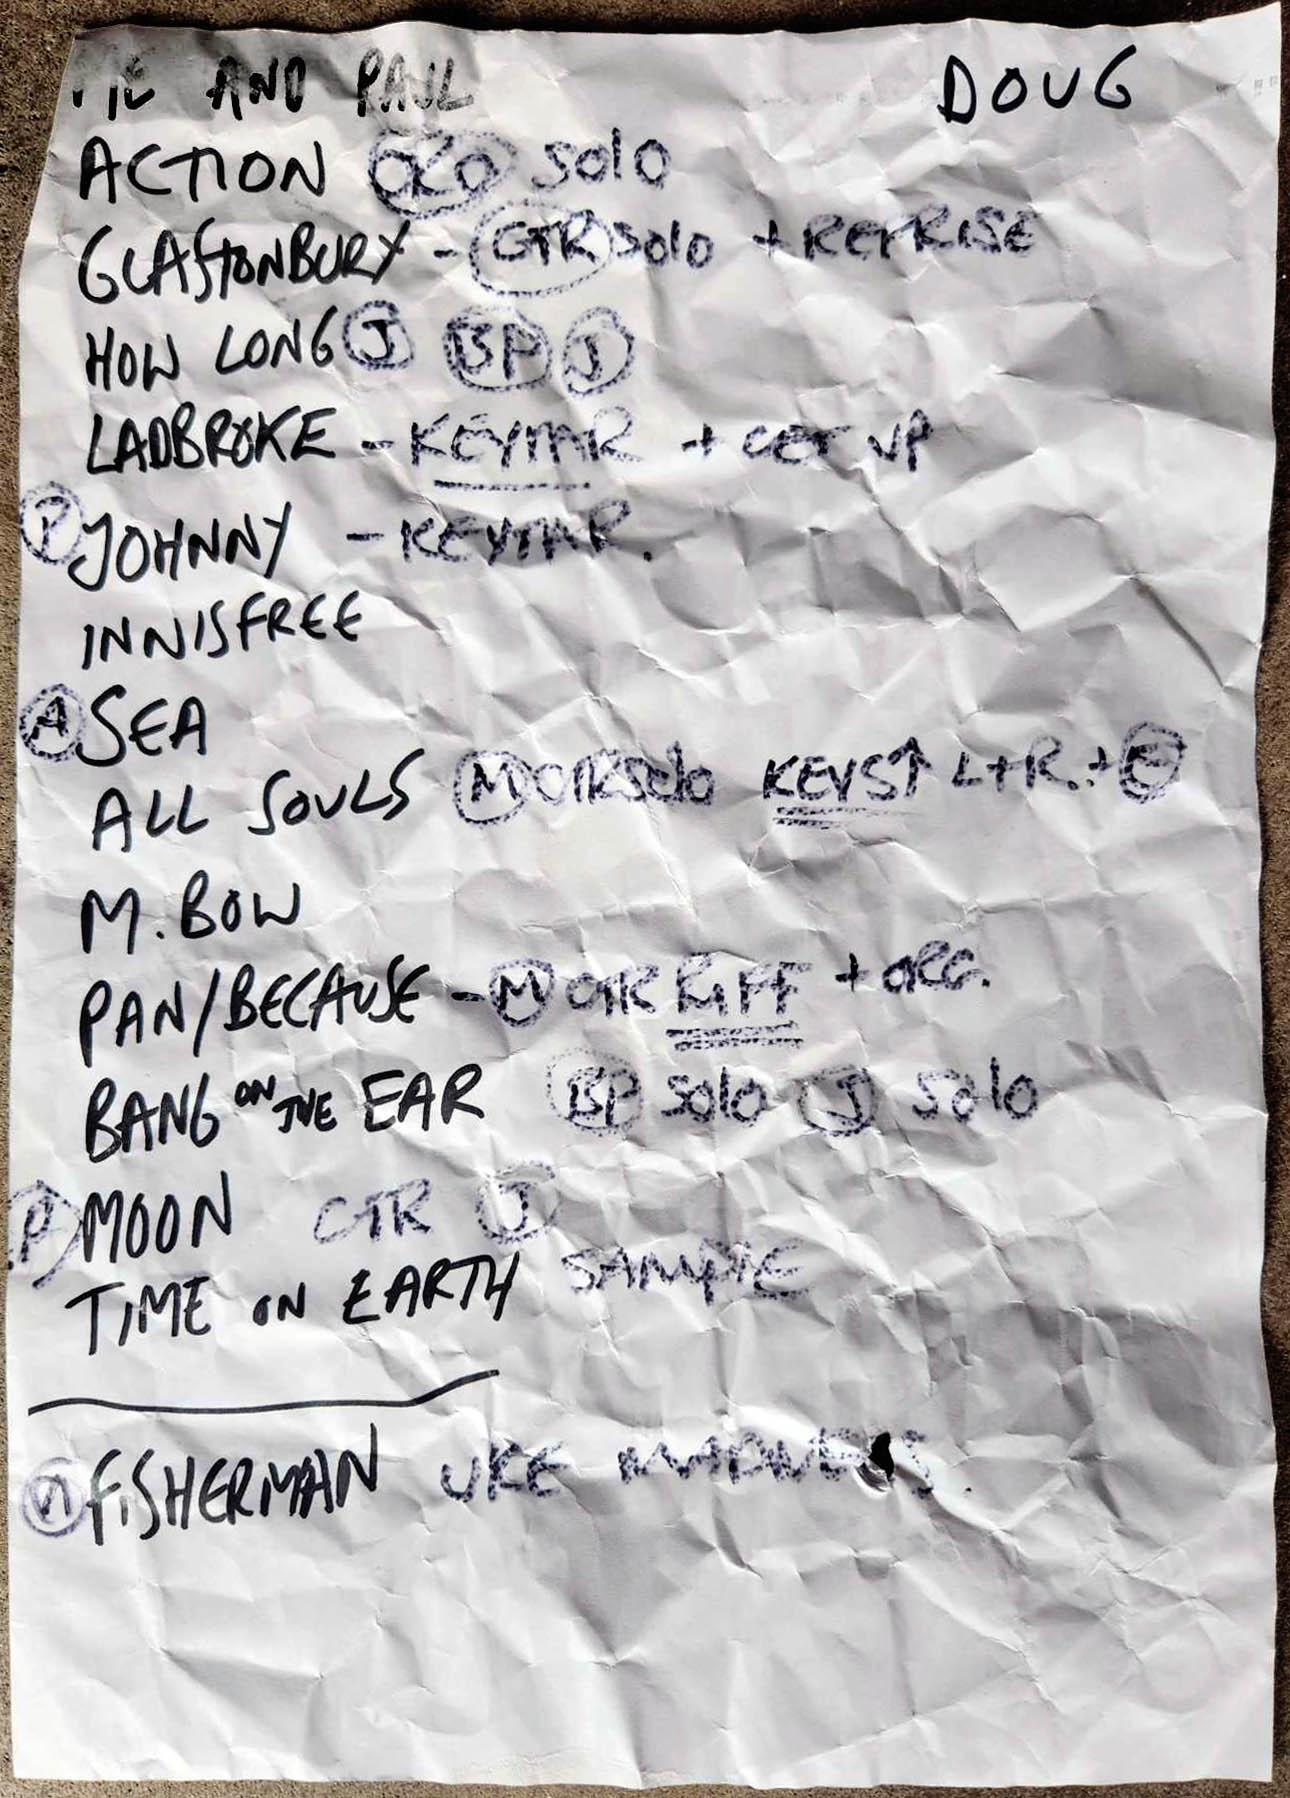 ME AND PAUL DOUG
ACTION ORG SOLO
GLASTONBURY - GTR SOLO + REPRISE
HOW LONG J BP J
LADBROKE - KEYTAR + GET UP
P JOHNNY - KEYTAR.
INNISFREE
A SEA
ALL SOULS M SOLO KEYS↑ L+R.+
M. BOW
PAN/BECAUSE - M GTR RIFF + ORG.
BANG ON THE EAR BP SOLO J SOLO
P MOON GTR J
TIME ON EARTH SAMPLE
FISHERMAN UKE MADNESS.